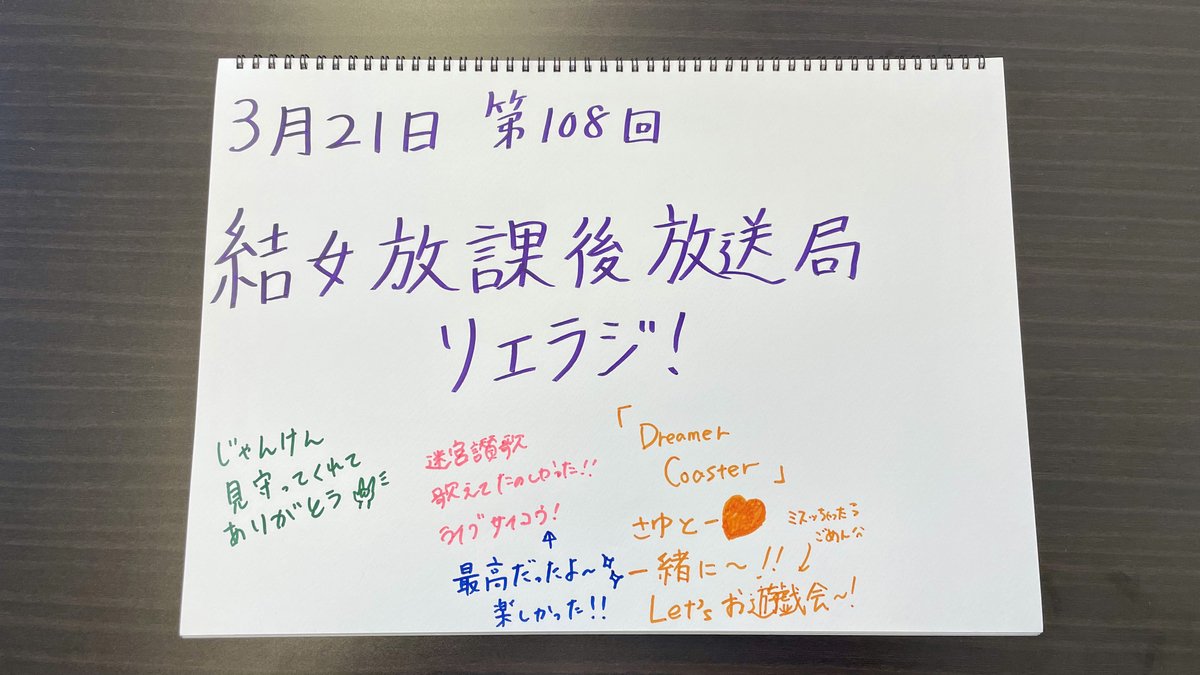 3月21日 第108回
結女放課後放送局
リエラジ!
じゃんけん
見守ってくれて
ありがとう
迷宮讃歌
歌えてたのしかった!!
ライブサイコウ!
最高だったよ~
楽しかった!!
「Dreamer
Coaster」
さゆと一
一緒に~!!
Let'sお遊戯会~!
ミスっちゃったら
ごめん